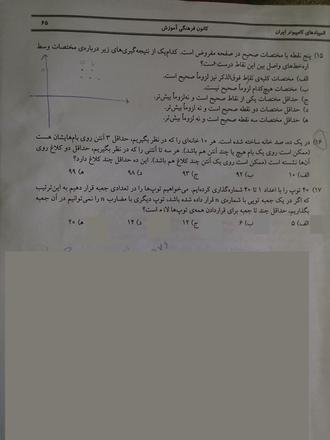 المپیادهای کامپیوتر ایران
کانون فرهنگی آموزش
۶۵
۱۵) پنج نقطه با مختصات صحیح در صفحه مفروض است. کدام‌یک از نتیجه‌گیری‌های زیر درباره‌ی مختصات وسط
پاره‌خط‌های واصل بین این نقاط درست است؟
الف) مختصات کلیه‌ی نقاط فوق‌الذکر نیز لزوماً صحیح است.
ب) مختصات هیچ‌کدام لزوماً صحیح نیست.
ج) حداقل مختصات یکی از نقاط صحیح است و نه‌لزوماً بیش‌تر.
د) حداقل مختصات دو نقطه صحیح است و نه لزوماً بیش‌تر.
ه) حداقل مختصات سه نقطه صحیح است و نه لزوماً بیش‌تر.
۱۶) در یک ده، صد خانه ساخته شده است. هر ۱۰ خانه‌ای را که در نظر بگیریم، حداقل ۳ آنتن روی بام‌هایشان هست
(ممکن است روی یک بام هیچ یا چند آنتن هم باشد). هر سه تا آنتنی را که در نظر بگیریم، حداقل دو کلاغ روی
آن‌ها نشسته است (ممکن است روی یک آنتن چند کلاغ هم باشد). این ده حداقل چند کلاغ دارد؟
الف) ۱۰ ب) ۹۲ ج) ۹۳ د) ۹۸ ه) ۹۹
۱۷) ۴۰ توپ را با اعداد ۱ تا ۴۰ شماره‌گذاری کرده‌ایم. می‌خواهیم توپ‌ها را در تعدادی جعبه قرار دهیم به این‌ترتیب
که اگر در یک جعبه توپی با شماره‌ی n قرار داده شده باشد، توپ دیگری با مضارب n را نمی‌توانیم در آن جعبه
بگذاریم. حداقل چند تا جعبه برای قراردادن همه‌ی توپ‌ها لازم است؟
الف) ۵ ب) ۶ ج) ۱۲ د) ۱۴ ه) ۲۰